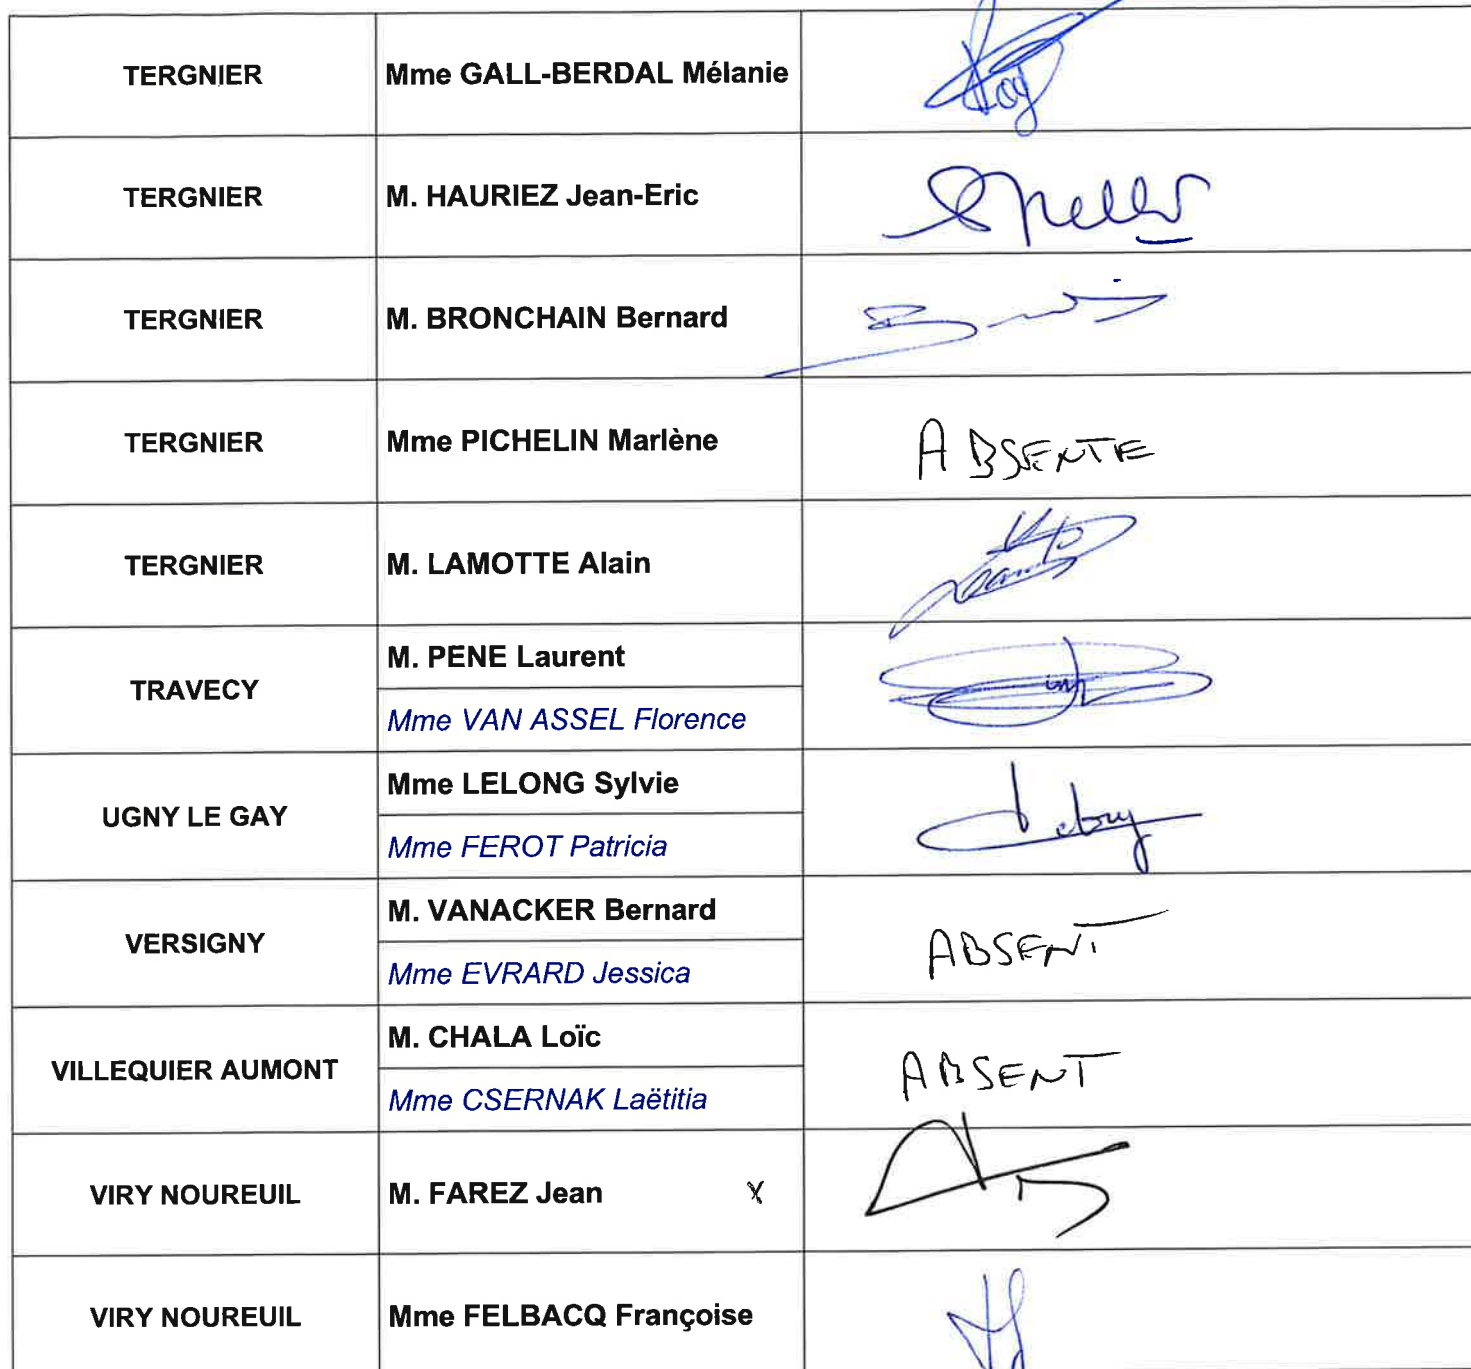 TERGNIER Mme GALL-BERDAL Mélanie
TERGNIER M. HAURIEZ Jean-Eric
TERGNIER M. BRONCHAIN Bernard
TERGNIER Mme PICHELIN Marlène ABSENTE
TERGNIER M. LAMOTTE Alain
M. PENE Laurent
TRAVECY
Mme VAN ASSEL Florence
Mme LELONG Sylvie
UGNY LE GAY
Mme FEROT Patricia
M. VANACKER Bernard
VERSIGNY ABSENT
Mme EVRARD Jessica
M. CHALA Loïc
VILLEQUIER AUMONT ABSENT
Mme CSERNAK Laëtitia
VIRY NOUREUIL M. FAREZ Jean X
VIRY NOUREUIL Mme FELBACQ Françoise